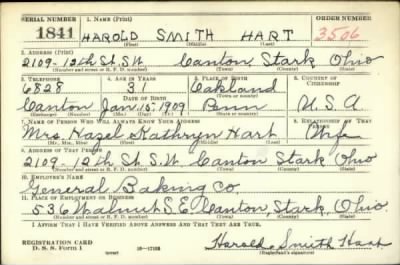 SERIAL NUMBER 1. NAME (Print) ORDER NUMBER
1841 HAROLD SMITH HART 3506
(First) (Middle) (Last)
2. ADDRESS (Print)
2109-12th St. S.W. Canton, Stark Ohio
(Number and street or R. F. D. number) (Town) (County) (State)
3. TELEPHONE 4. AGE IN YEARS 5. PLACE OF BIRTH 6. COUNTRY OF CITIZENSHIP
6828 31 Oakland
DATE OF BIRTH (Town or county)
Canton Jan. 15. 1909 Penn U.S.A
(Exchange) (Number) (Mo.) (Day) (Yr.) (State or country)
7. NAME OF PERSON WHO WILL ALWAYS KNOW YOUR ADDRESS 8. RELATIONSHIP OF THAT PERSON
Mrs. Hazel Kathryn Hart Wife
(Mr., Mrs., Miss) (First) (Middle) (Last)
9. ADDRESS OF THAT PERSON
2109-12th St S.W. Canton Stark Ohio
(Number and street or R. F. D. number) (Town) (County) (State)
10. EMPLOYER'S NAME
General Baking Co
11. PLACE OF EMPLOYMENT OR BUSINESS
536 Walnut S.E. Canton, Stark, Ohio.
(Number and street or R. F. D. number) (Town) (County) (State)
I AFFIRM THAT I HAVE VERIFIED ABOVE ANSWERS AND THAT THEY ARE TRUE.
REGISTRATION CARD
D. S. S. Form 1 (over) 16-17105 Harold Smith Hart
(Registrant's signature)